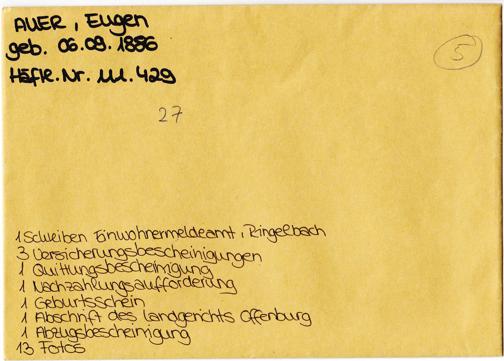 AUER, Eugen
geb. 06.09.1886
Häftl.Nr. 111.429
5
27
1 Schreiben Einwohnermeldeamt, Ringelbach
3 Versicherungsbescheinigungen
1 Quittungsbescheinigung
1 Nachzahlungsaufforderung
1 Geburtsschein
1 Abschrift des Landgerichts Offenburg
1 Abzugsbescheinigung
13 Fotos